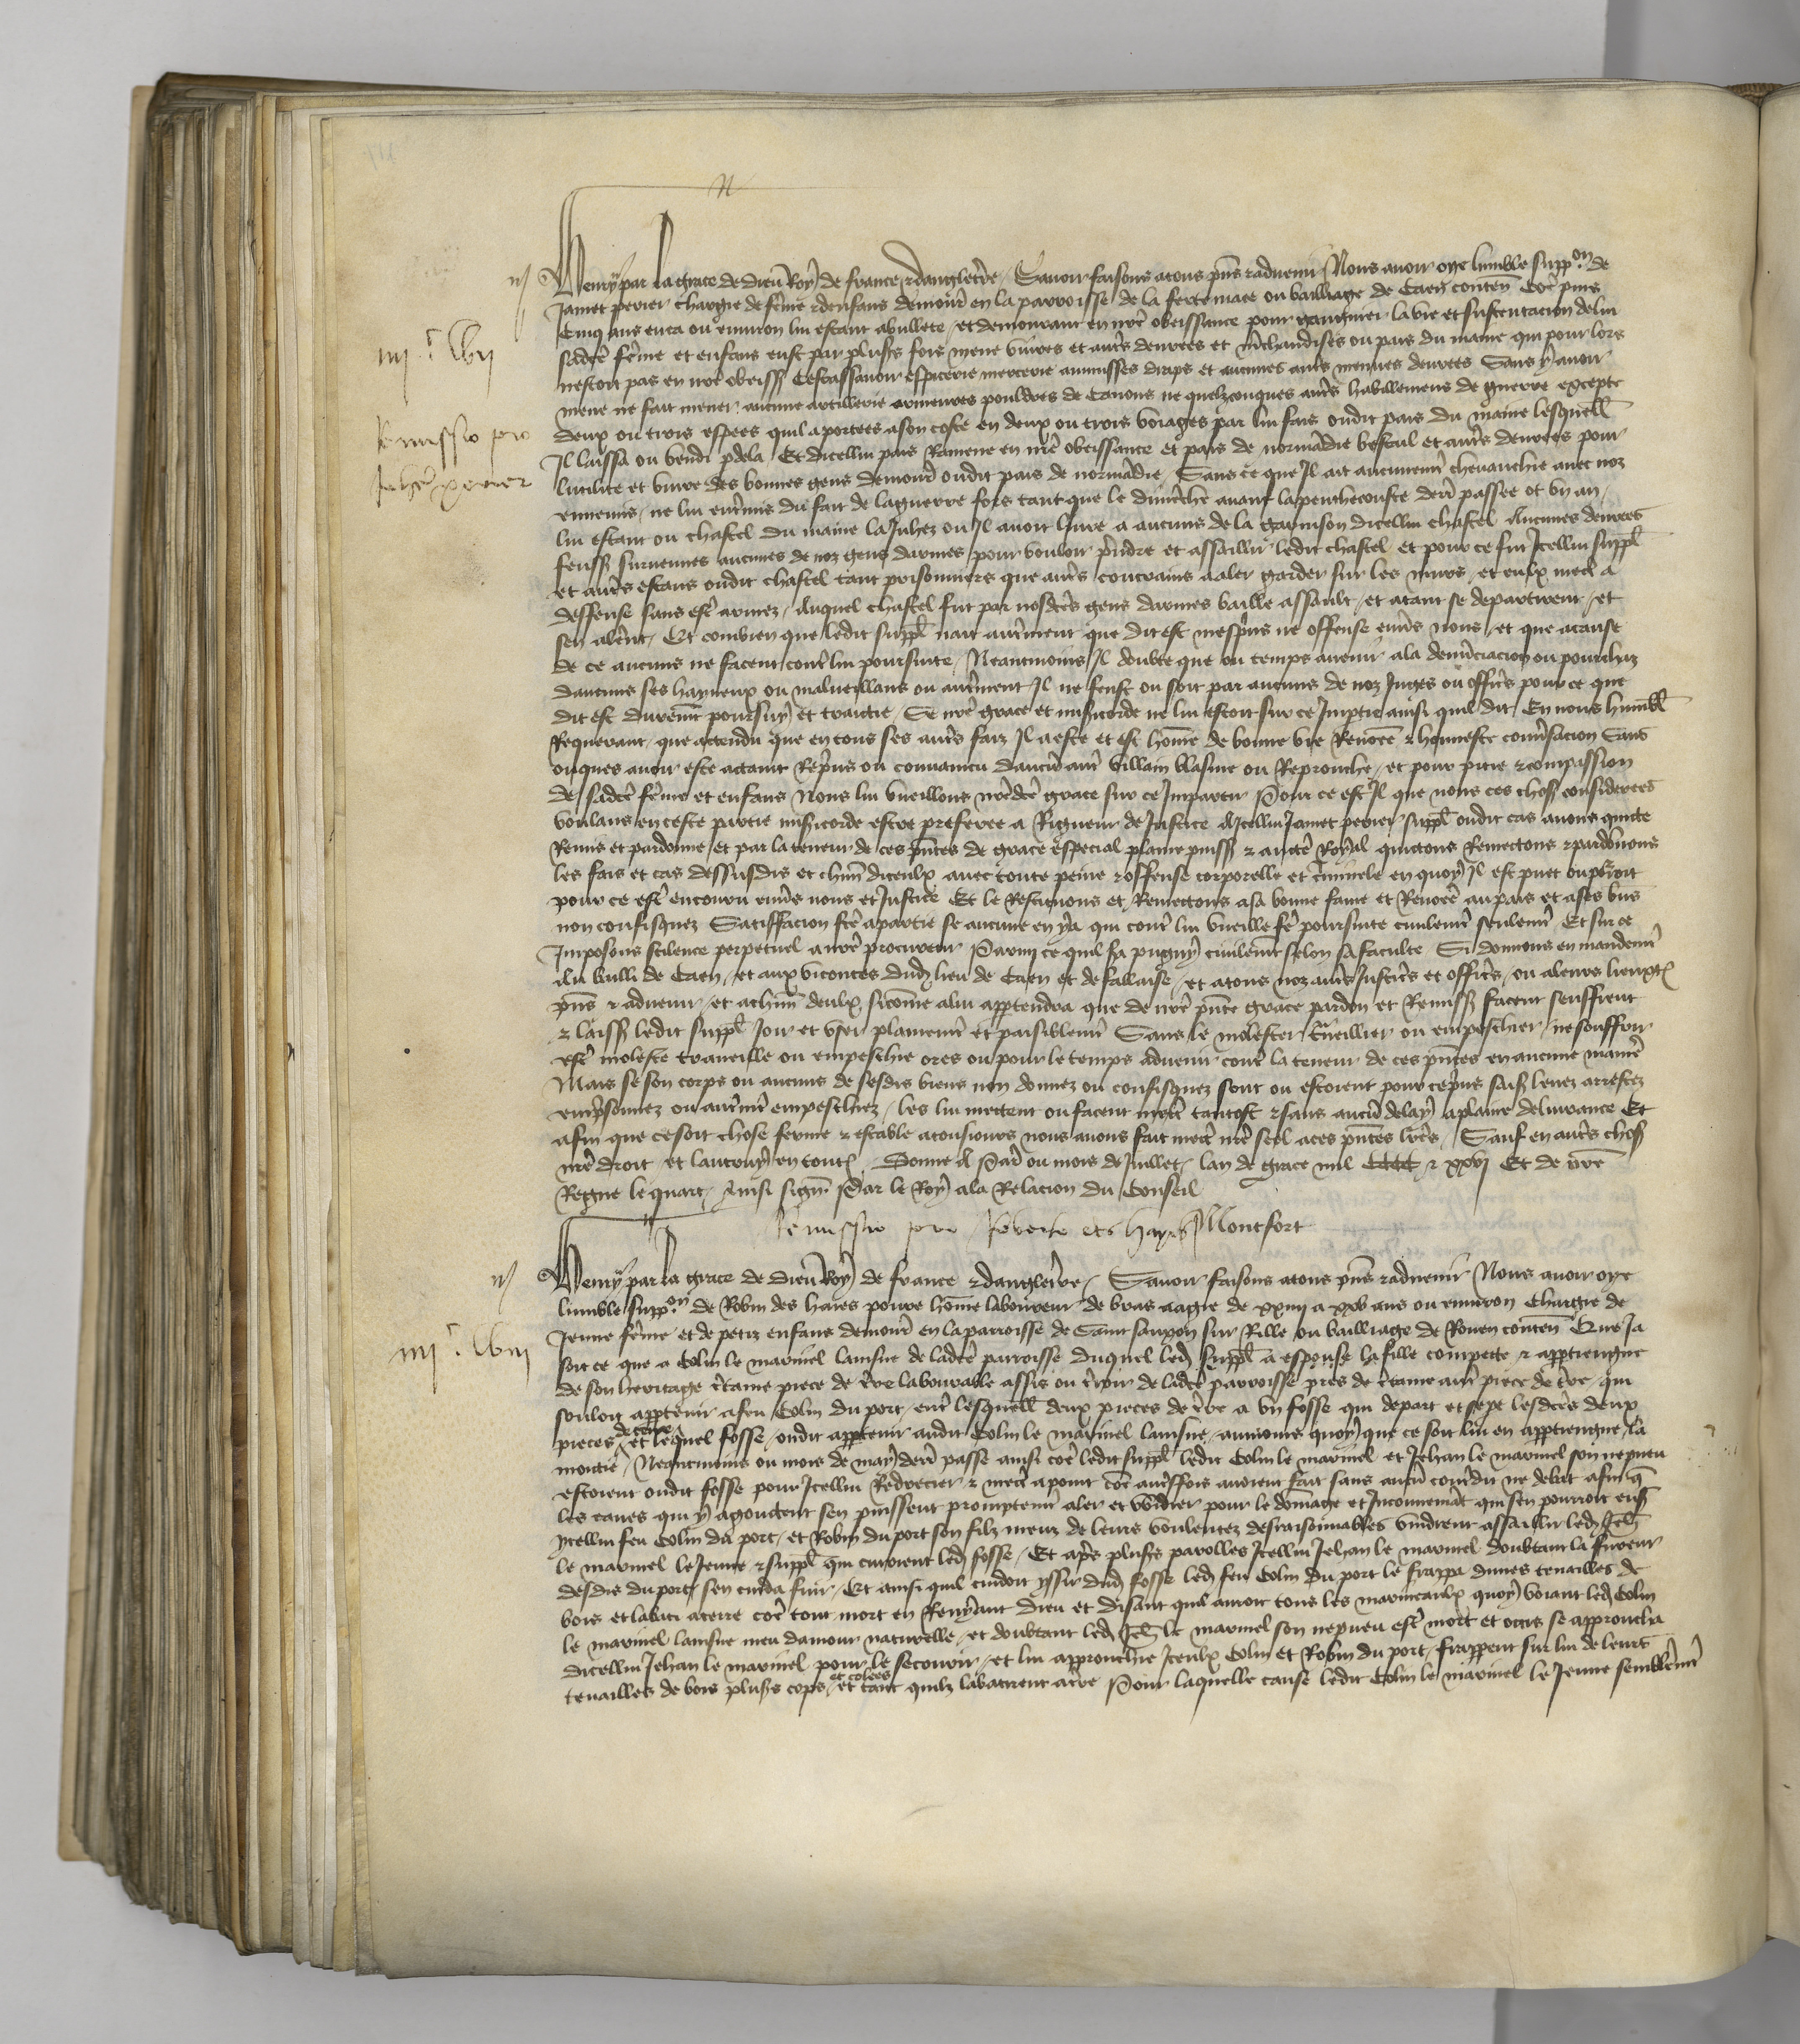 Henry par la grace de dieu Roy de france et dangleterre Savoir faisons a tous pñs et advenir Nous avoir oye lumble suppon de
Jamet perier chargie de fẽme et denfans demourt en la parroisse de la ferte mace ou bailliage de Caen conten Coẽ puis
Cinq ans enca ou environ lui estant abullete et demourant en nrẽ obeissance pour gaingnier la vie et sustentacion de lui
sadcte fẽme et enfans eust par plusrs fois mene vivres et autrs denrees et mchandises ou pais du maine qui pour lors
nestoit pas en nrẽ obeiss Cestassavoir espicerie mercerie aumusses draps et aucunes autrs menues denrees Sans y avoir
mene ne fait mener aucune artillerie armeures pouldres de Canons ne quelzconques autrs habillemens de guerre excepte
deux ou trois espees quil a portees a son coste en deux ou trois voiages par lui fais oudit pais du maine lesquell
Il laissa ou vendi pdela Et dicellui pais Ramene en nrẽ obeissance et pais de normãdie bestail et autrs denrees pour
lutilite et vivre des bonnes gens demourt oudit pais de normãdie Sans ce que Il ait aucunemt chevauchie avec noz
ennemis ne lui entremis du fait de la guerre fors tant que le dimẽche avant la penthecouste derr passee ot un an
lui estant ou chastel du maine la Juhez ou Il avoit livre a aucuns de la garnison dicellui chastel Aucunes denrees
feuss survenues aucunes de noz gens darmes pour vouloir prndre et assaillir ledit chastel et pour ce fu Icellui suppl
et autrs estans oudit chastel tant prisonniers que autrs contrains a aler garder sur les murs et eulx mectr a
deffense sans estr armez Auquel chastel fut par nosdctes gens darmes baille assault et atant se departirent et
sen alerent Et combien que ledit suppl nait autrment que dit est mesprins ne offense envrs nous et que a cause
de ce aucuns ne facent contr lui poursuite Neantmoins Il doubte que ou temps avenir a la denũciacion ou pourchaz
daucuns ses hayneux ou malveillans ou autrment Il ne feust ou soit par aucuns de noz Juges ou officrs pour ce que
dit est durement poursuy et traictie Se nrẽ grace et misicorde ne lui estoit sur ce Imptie ainsi quil dit En nous humbl
Requerant que actendu que en tous ses autrs faiz Il a este et est hom̃e de bonne vie Renõee et honneste convrsacion Sans
onques avoir este actaint Reprins ou convaincu daucũ autr villain blasme ou Reprouche et pour pitie et compassion
de sadcte fẽme et enfans Nous lui vueillons nrẽdcte grace sur ce Impartir Pour ce est Il que nous ces choss considerees
voulans en ceste partie misicorde estre preferee a Rigueur de Justice A Icellui Jamet perier suppl oudit cas avons quicte
Remis et pardonne et par la teneur de ces pñtes de grace especial plaine puiss et aucte Royal quictons Remectons et pardonnons
les fais et cas dessusdis et chũn diceulx avec toute peine et offense corporelle et crminele en quoy Il est puet ou pourroit
pour ce estr encouru envrs nous et Justice Et le Restituons et Remectons a sa bonne fame et Renõee au pais et a ses biens
non confisquez Satisfacion fcte a partie se aucune en y a qui contr lui vueille fer poursuite civilemt seulemt Et sur ce
Imposons scilence perpetuel a nrẽ procureur Parmi ce quil sa pugny civilemt selon sa faculte Si donnons en mandemt
Au bailli de Caen et aux vicontes dud lieu de Caen et de fallaise et a tous noz autrs Justicrs et officrs ou a leurs lieuxt
pñs et advenir et a chũn deulx sicom̃e a lui apptendra que de nrẽ pñte grace pardon et Remiss facent seuffrent
et laiss ledit suppl Joir et user plainemt et paisiblemt Sans le molester traveillier ou empeschier ne souffrir
estr moleste traveille ou empeschie ores ou pour le temps advenir contr la teneur de ces pñtes en aucune manier
Mais se son corps ou aucuns de sesdis biens non donnez ou confisquez sont ou estoient pour ce prins saisi levez arrestez
emprisonnez ou autrmt empeschiez les lui mectent ou facent mectr tantost et sans aucũ delay a plaine delivrance Et
afin que ce soit chose ferme et estable a tousiours nous avons fait mectr nrẽ seel a ces pñtes lrẽs Sauf en autrs choss
nrẽ droit et lautruy en touts Donne A Paris ou mois de Juillet lan de grace mil CCCC et xxvj Et de nrẽ
Regne le quart Ainsi signe Par le Roy a la Relacion du Conseil
Montfort
iiij c lvij
Remissio pro
Jehan perier
Remissio pro Roberto des hayes
Henry par la grace de dieu Roy de france et dangleterre Savoir faisons a tous pñs et advenir Nous avoir oye
lumble suppon de Robin des haies povre hom̃e laboureur de bras aagie de xxiiij a xxv ans ou environ Chargie de
Jeune fẽme et de petiz enfans demourt en la parroisse de Saint sanxon sur Rille ou bailliage de Rouen conten Que Ja
soit ce que a Colin le marinel lainsne de ladcte parroisse duquel led suppl a espouse la fille compecte et apptiengne
de son heritage crtaine piece de trre labourable assis ou trroir de ladcte parroisse pres de crtaine autr piece de trre qui
souloit apptenir a feu Colin du port entr lesquell deux pieces de trre a un fosse qui depart et sepe lesdctes deux
pieces de terre et lequel fosse oudit apptenir audit Colin le marinel lainsne aumoins quoy que ce soit lui en apptiengne la
moitie Neantmoins ou mois de may derr passe ainsi coẽ ledit suppl ledit Colin le marinel et Jehan le marinel son nepveu
estoient oudit fosse pour Icellui Redrecier et mectr a point coẽ autrsfois avoient fait sans aucũ contrdit ne debat afin q̃
les eaues qui y agoutent sen puissent promptemt aler et widier pour le dõmage et Inconveniẽt qui sen pourroit ens
ycellui feu Colin du port et Robin du port son filz meuz de leurs voulentez desraisonnables vindrent assaillir led Jeh
le marinel le Jeune et suppl qui curoient led fosse Et aprs plusrs parolles Icellui Jehan le marinel doubtant la fureur
desdis du port sen cuida fuir Et ainsi quil cuidoit yssir dud fosse led feu Colin du port le frappa dunes tenailles de
bois et labati a terre coẽ tout mort en Reniant dieu et disant quil auroit tous les marineaulx quoy voiant led Colin
le marinel lainsne meu damour naturelle et doubtant led Jeh le marinel son nepveu estr mort et occis se approucha
dicellui Jehan le marinel pour le secourir et lui approuchie Iceulx Colin et Robin du port frapperent sur lui de leurs
tenailles de bois plusrs cops et colees et tant quilz labatirent a trre Pour laquelle cause ledit Colin le marinel le Jeune semblemt
iiij c lviij